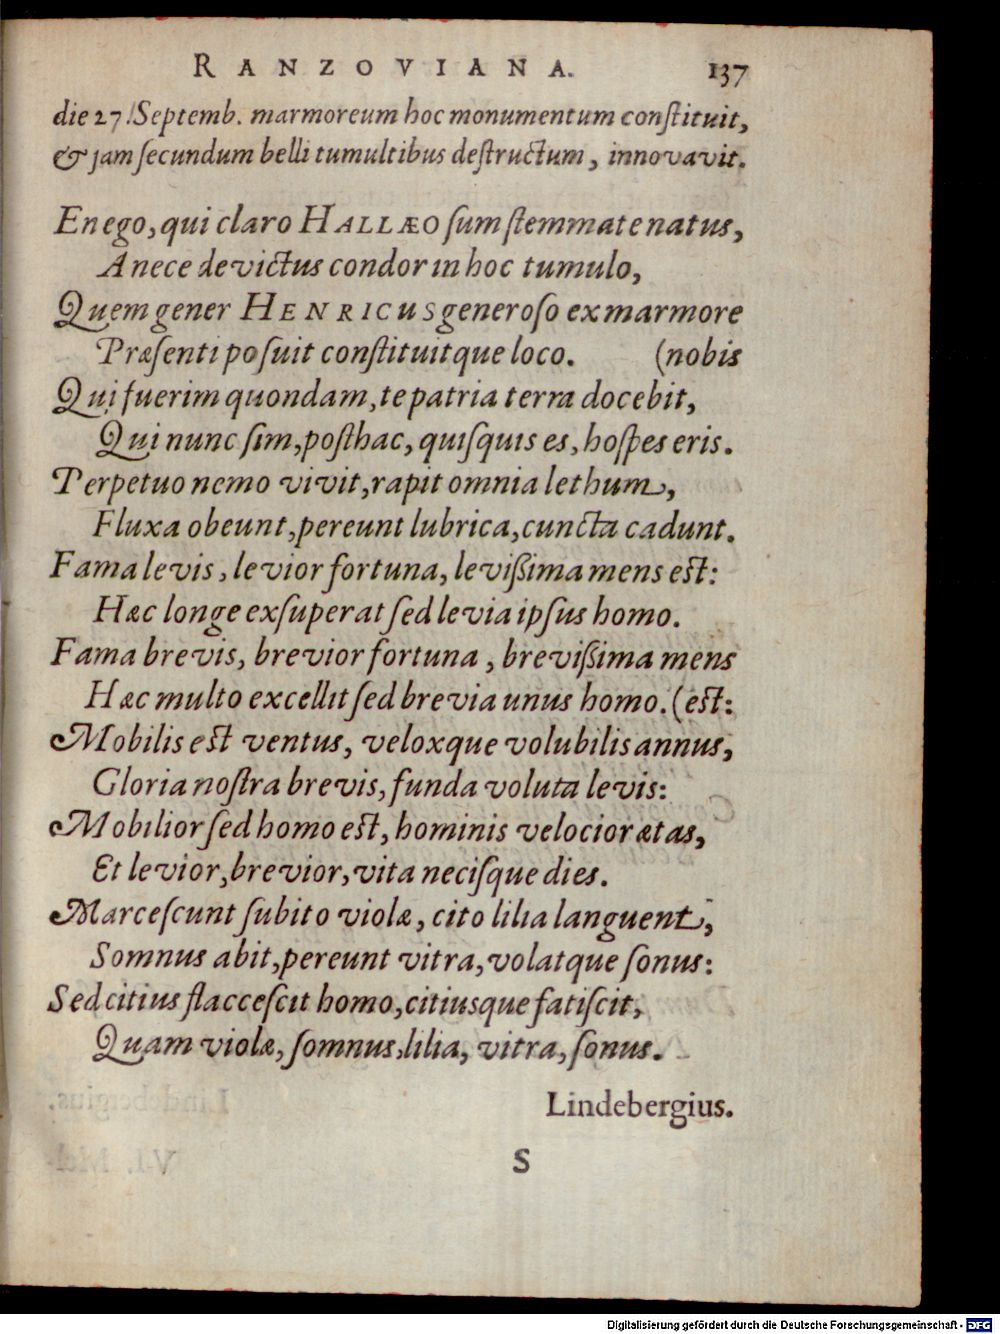 RANZOVIANA. 137
die 27. Septemb. marmoreum hoc monumentum conſtituit,
& jam ſecundum belli tumultibus deſtructum, innovavit.
En ego, qui claro HALLÆO ſum ſtemmate natus,
A nece devictus condor in hoc tumulo,
Quem gener HENRICUS generoſo ex marmore
Præſenti poſuit conſtituitque loco. (nobis
Qui fuerim quondam, te patria terra docebit,
Qui nunc ſim, poſthac, quiſquis es, hoſpes eris.
Perpetuo nemo vivit, rapit omnia lethum,
Fluxa obeunt, pereunt lubrica, cuncta cadunt.
Fama levis, levior fortuna, leviſſima mens eſt:
Hæc longe exſuperat ſed levia ipſus homo.
Fama brevis, brevior fortuna, breviſſima mens
Hæc multo excellit ſed brevia unus homo. (eſt:
Mobilis eſt ventus, veloxque volubilis annus,
Gloria noſtra brevis, funda voluta levis:
Mobilior ſed homo eſt, hominis velocior ætas,
Et levior, brevior, vita neciſque dies.
Marceſcunt ſubito violæ, cito lilia languent,
Somnus abit, pereunt vitra, volatque ſonus:
Sed citius flacceſcit homo, citiusque fatiſcit,
Quam violæ, ſomnus, lilia, vitra, ſonus.
Lindebergius.
S
Digitalisierung gefördert durch die Deutsche Forschungsgemeinschaft - DFG